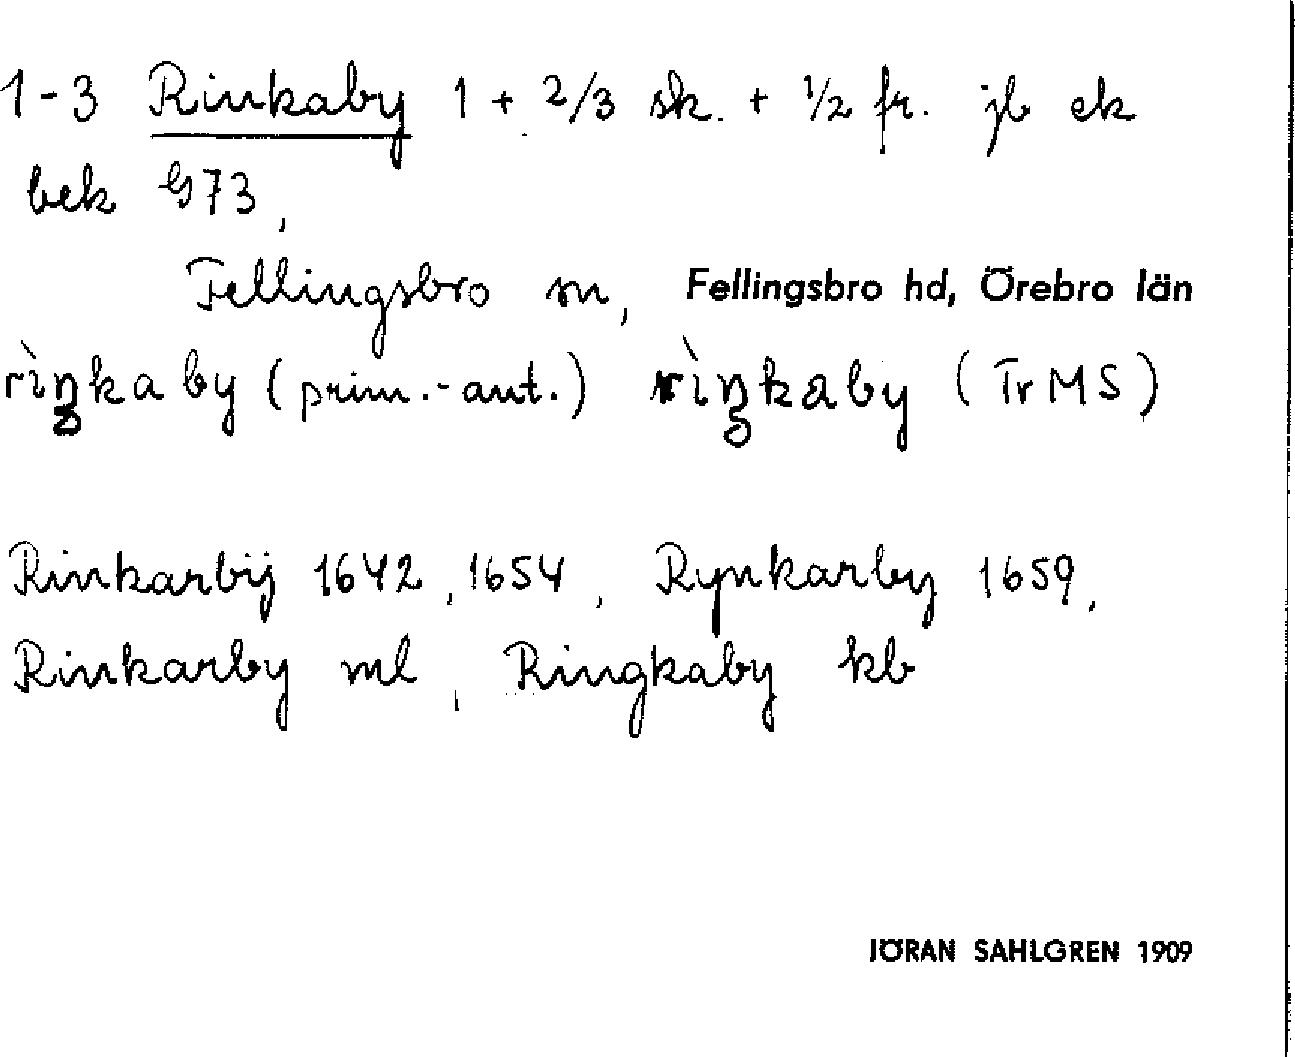 1-3 Rinkaby 1 + 2/3 sk. + 1/2 fr. jb ek
bek G73,
Fellingsbro sn, Fellingsbro hd, Örebro län
rìŋkaby (prim.-ant.) rìŋkaby (TrMS)
Rinkarbÿ 1642, 1654, Rynkarby 1659,
Rinkarby ml, Ringkaby kb
JÖRAN SAHLGREN 1909